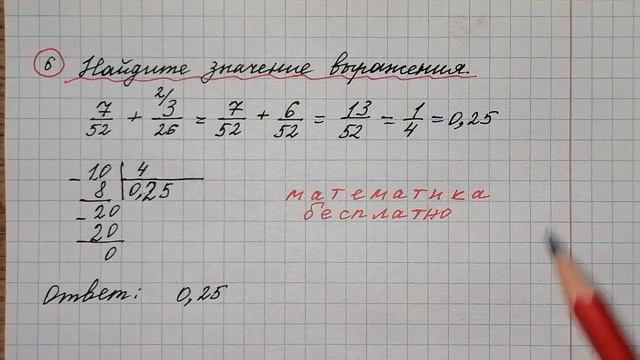 6 Найдите значение выражения.
7/52 + 2/ 3/26 = 7/52 + 6/52 = 13/52 = 1/4 = 0,25
- 10 | 4
8 | 0,25
- 20
20
0
математика
бесплатно
Ответ: 0,25